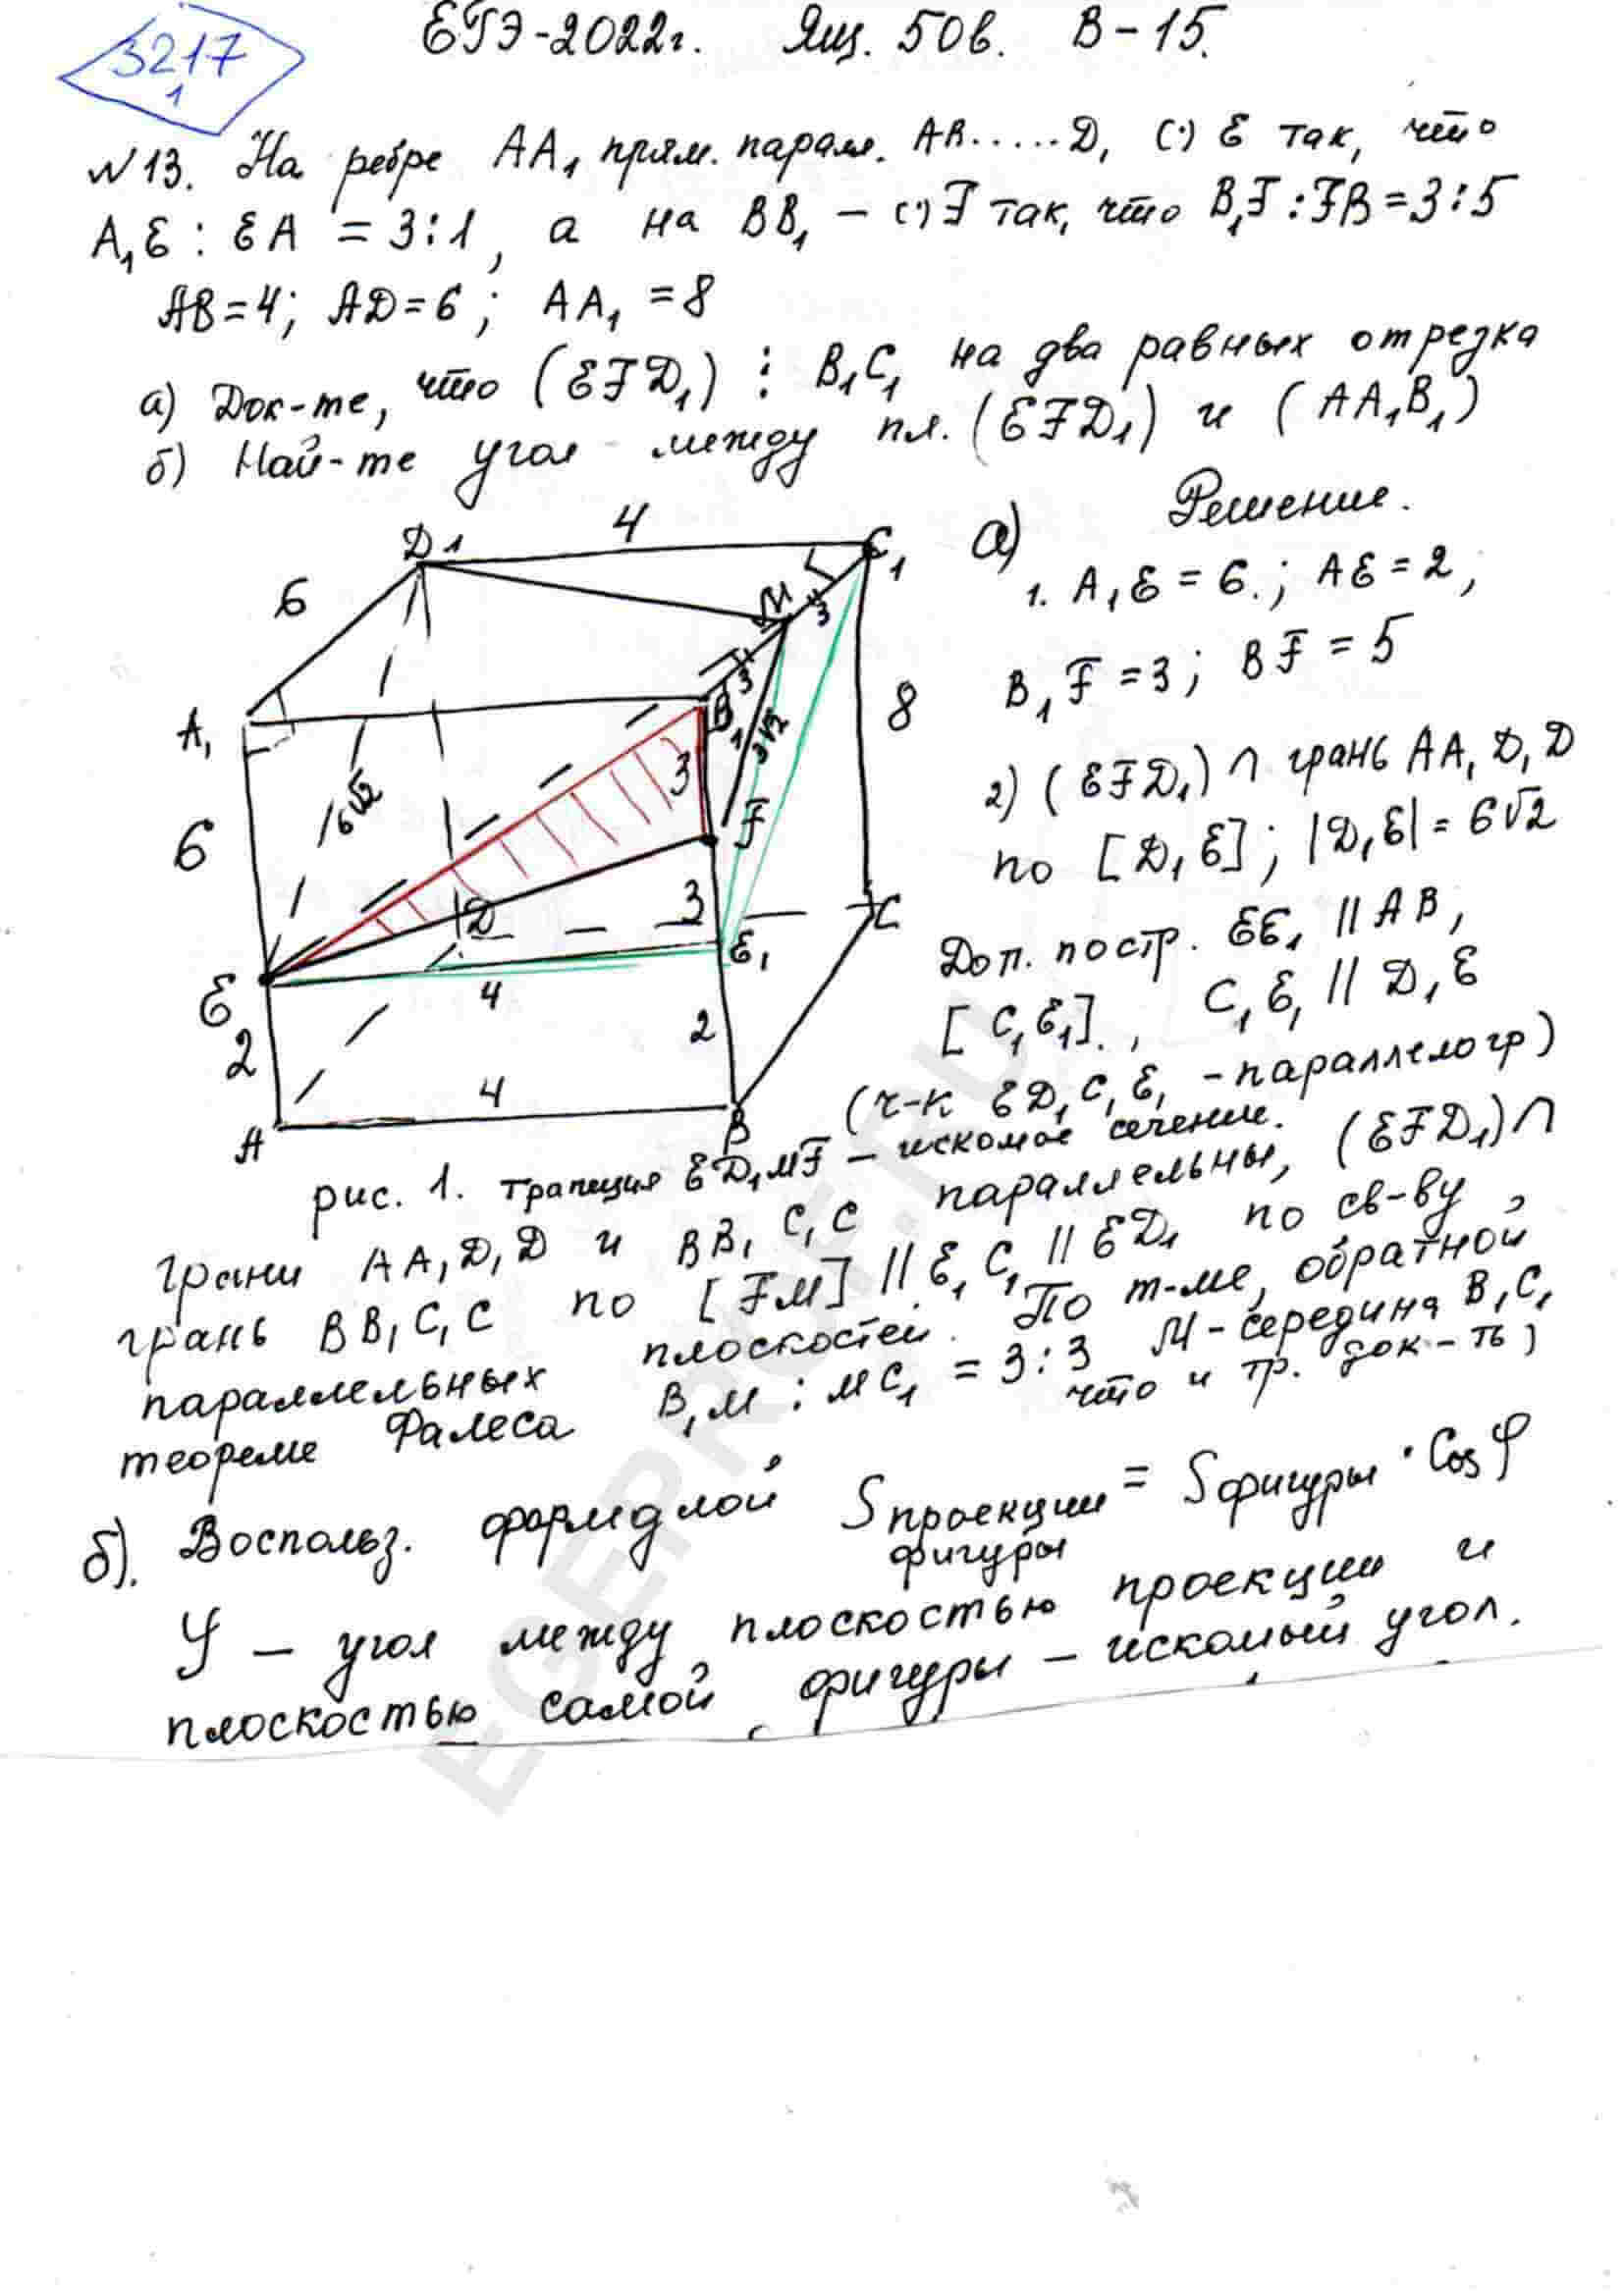 3217
1
ЕГЭ-2022г. Ящ. 50в. В-15.
№13. На ребре AA₁ прям. парал. AB.....D₁ (·) E так, что
A₁E : EA = 3:1, а на BB₁ – (·) F так, что B₁F : FB = 3:5
AB=4; AD=6; AA₁ = 8
а) Док-те, что (EFD₁) ⋮ B₁C₁ на два равных отрезка
б) Най-те угол между пл. (EFD₁) и (AA₁B₁)
Решение.
D₁ 4 C₁
6 M 3
A₁ B₁ 3 8
6√2 3√2 3
6 F
D 3 C
E 4 E₁
2 2
4
A B
рис. 1.
а)
1. A₁E = 6.; AE = 2;
B₁F = 3; BF = 5
2) (EFD₁) ∩ грань AA₁D₁D
по [D₁E]; |D₁E| = 6√2
Доп. постр. EE₁ || AB,
[C₁E₁]., C₁E₁ || D₁E
(ч-к ED₁C₁E₁ - параллелогр)
трапеция ED₁MF – искомое сечение.
Грани AA₁D₁D и BB₁C₁C параллельны, (EFD₁) ∩
грань BB₁C₁C по [FM] || E₁C₁ || ED₁ по св-ву
параллельных плоскостей. По т-ме, обратной
теореме Фалеса B₁M : MC₁ = 3:3 M - середина B₁C₁
что и тр. док-ть)
б). Воспольз. формулой Sпроекции фигуры = Sфигуры · Cos φ
φ – угол между плоскостью проекции и
плоскостью самой фигуры – искомый угол.
EGEPROF.RU